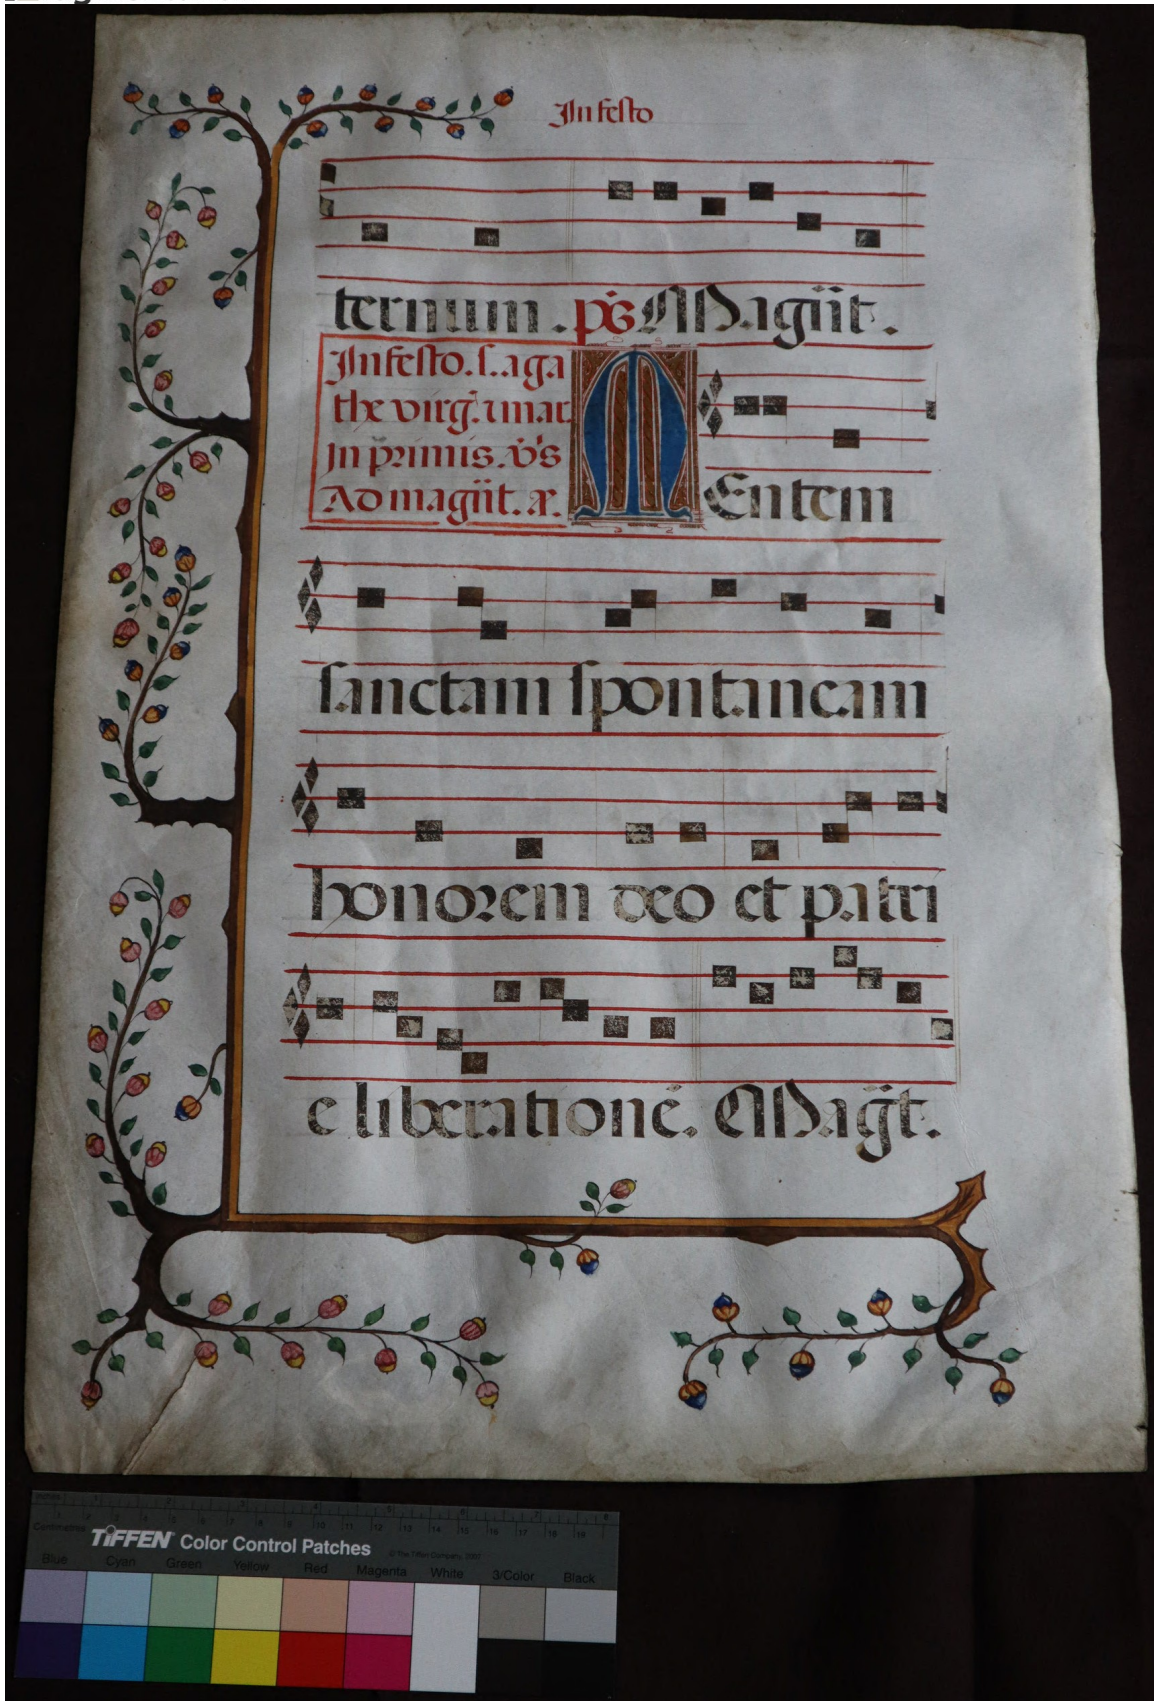 In festo
ternum. ps Magnit.
In festo. s. aga
the virg. z mar.
In primis. vs
Ad magnit. æ.
MEntem
sanctam spontaneam
honorem deo et patri
e liberationē. Magt.
TIFFEN Color Control Patches
© The Tiffen Company, 2007
Centimetres
Blue Cyan Green Yellow Red Magenta White 3/Color Black